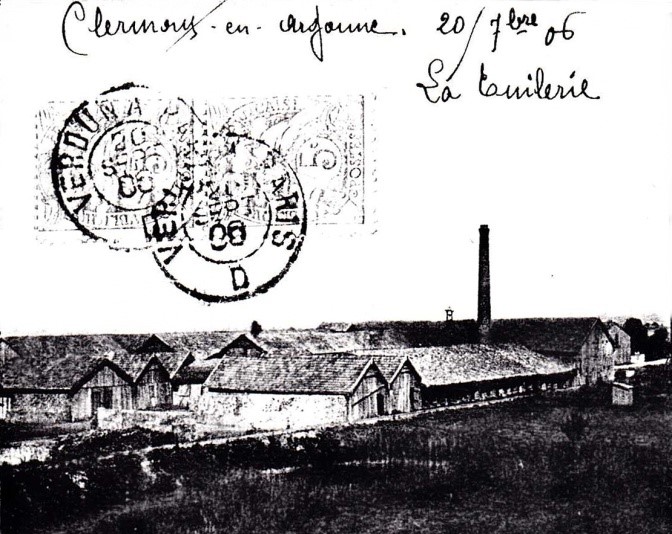 Clermont-en-Argonne. 20/7bre 06
La Tuilerie
VERDUN A PARIS
20
SEPT
06
VERDUN A PARIS
06
D